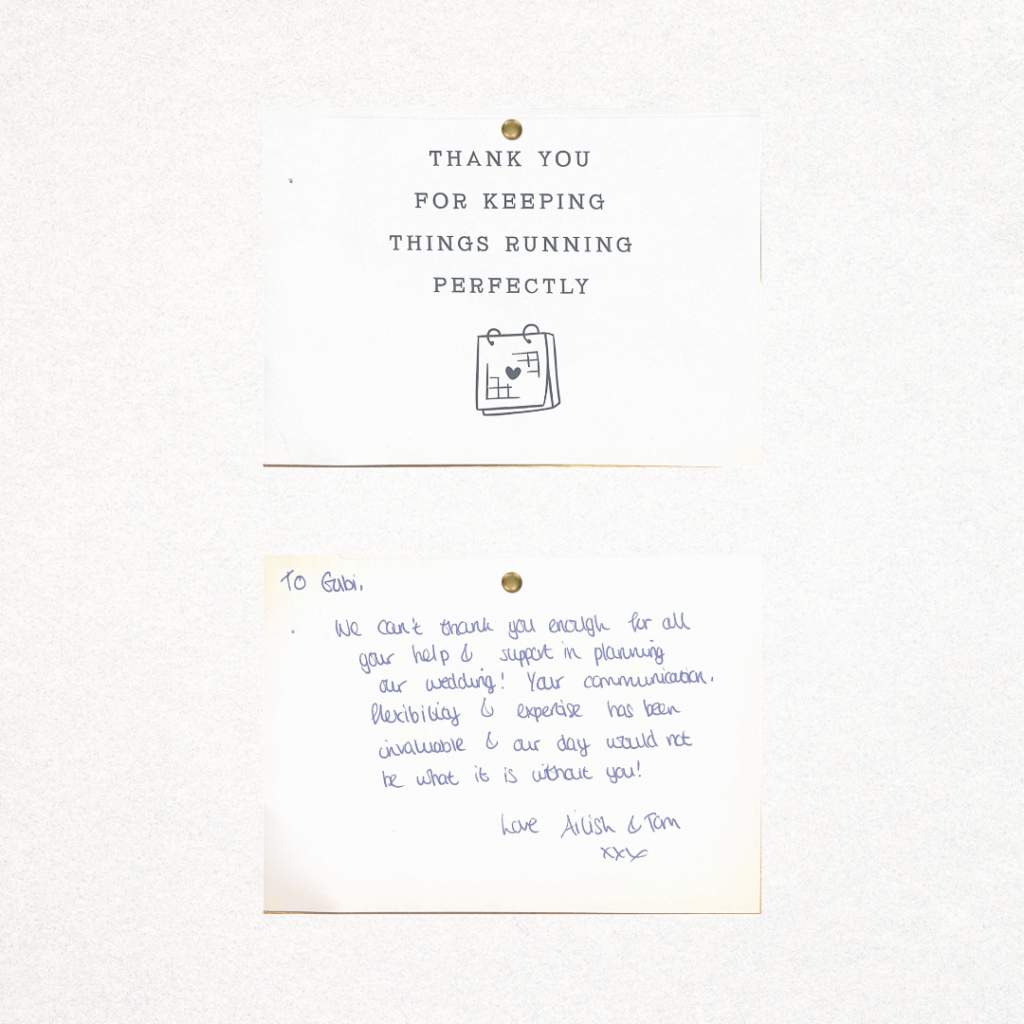 THANK YOU
FOR KEEPING
THINGS RUNNING
PERFECTLY
To Gabi,
We can't thank you enough for all
your help & support in planning
our wedding! Your communication,
flexibility & expertise has been
invaluable & our day would not
be what it is without you!
Love Ailish & Tom
xxx